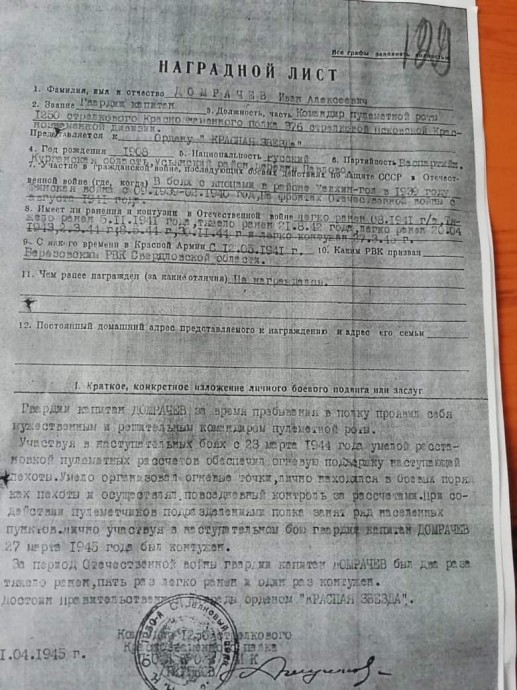 Все графы заполнять полностью
122
НАГРАДНОЙ ЛИСТ
1. Фамилия, имя и отчество ДОМРАЧЕВ Иван Алексеевич
2. Звание Гвардии капитан 3. Должность, часть Командир пулеметной роты
1250 стрелкового Краснознаменного полка 376 стрелковой псковской Крас-
нознаменной дивизии.
Представляется к Ордену "КРАСНАЯ ЗВЕЗДА"
4. Год рождения 1908 5. Национальность русский 6. Партийность Беспартийн.
Курганская область, район,
7. Участие в гражданской войне, последующих боевых действиях по защите СССР и Отечест-
венной войне (где, когда) В боях с японцами в районе Халхин-гол в 1939 году
Финская война с 09.1939-04.1940 год, на фронтах Отечественной войны с
августа 1941 года.
8. Имеет ли ранения и контузии в Отечественной войне легко ранен 08.1941 г/э, тя-
жело ранен 5.11.1941 года, тяжело ранен 21.8.42 года, легко ранен 20.04
1943, 2.3.44 г, 8.5.44 г, 30.11.44 г и легко контужен 27.3.45 г.
9. С какого времени в Красной Армии С 12.05.1941 г. 10. Каким РВК призван
Березовским РВК Свердловской области.
11. Чем ранее награжден (за какие отличия) Не награжден.
12. Постоянный домашний адрес представляемого к награждению и адрес его семьи
1. Краткое, конкретное изложение личного боевого подвига или заслуг
Гвардии капитан ДОМРАЧЕВ за время пребывания в полку проявил себя
мужественным и решительным командиром пулеметной роты.
Участвуя в наступательных боях с 23 марта 1944 года умелой расста-
новкой пулеметных рассчетов обеспечил огневую поддержку наступающей
пехоты. Умело организовал огневые точки, лично находился в боевых поряд
ках пехоты и осуществлял повседневный контроль за рассчетами. При со-
действии пулеметчиков подразделениями полка занят ряд населенных
пунктов. лично участвуя в наступательном бою гвардии капитан ДОМРАЧЕВ
27 марта 1945 года был контужен.
За период Отечественной войны гвардии капитан ДОМРАЧЕВ был два раза
тяжело ранен, пять раз легко ранен и один раз контужен.
Достоин Правительственной орденом "КРАСНАЯ ЗВЕЗДА".
1250 стрелкового
Краснознаменного полка
1.04.1945 г.